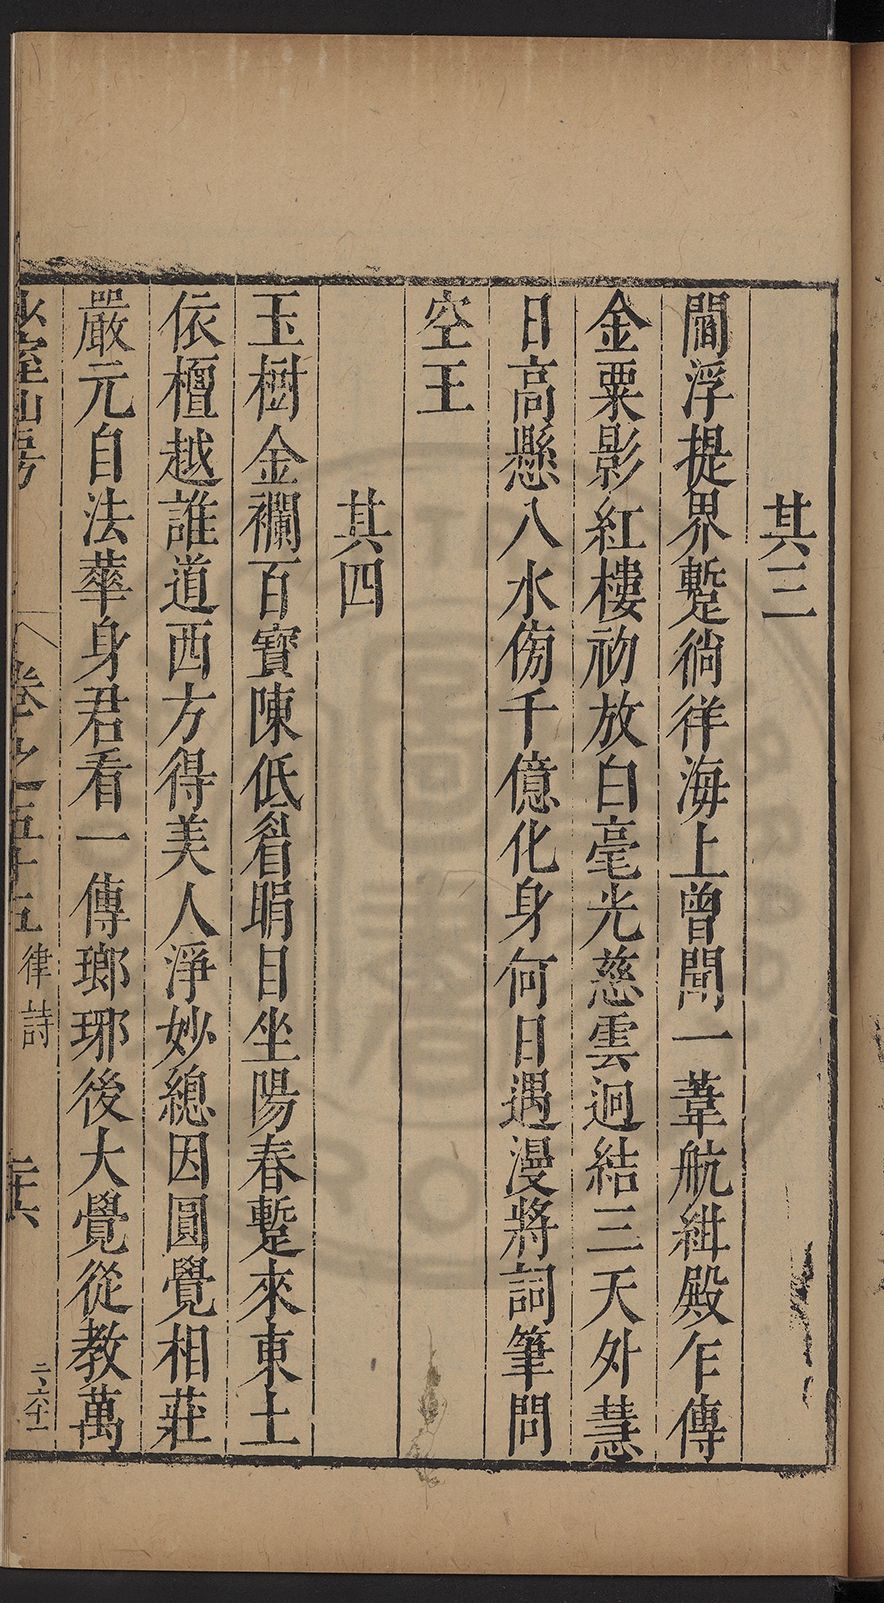 其三
閻浮提界蹔徜徉海上曾聞一葦航紺殿乍傳
金粟影紅樓初放白毫光慈雲迥結三天外慧
日高懸八水傍千億化身何日遇漫將詞筆問
空王
其四
玉樹金襴百寶陳低眉䀏目坐陽春蹔來東土
依檀越誰道西方得美人淨妙總因圓覺相莊
嚴元自法華身君看一傳瑯琊後大覺從教萬
山房
卷之五十五 律詩